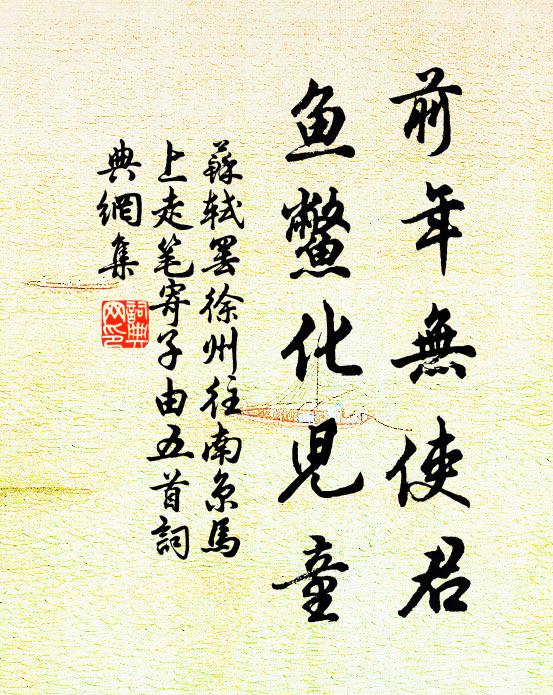 前年無使君
鱼鱉化児童
蘇軾罢徐州往南京馬
上走笔寄子由五首詞
典網集
詞典
网印